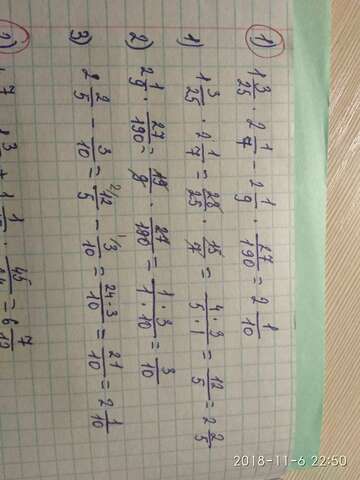 1) 
1 3/25 · 2 1/7 - 2 1/9 · 27/190 = 2 1/10
1) 1 3/25 · 2 1/7 = 28/25 · 15/7 = 4·3/5·1 = 12/5 = 2 2/5
2) 2 1/9 · 27/190 = 19/9 · 27/190 = 1·3/1·10 = 3/10
3) 2 2/5 - 3/10 = 12/5 - 3/10 = 24·3/10 = 21/10 = 2 1/10
2)
2018-11-6 22:50